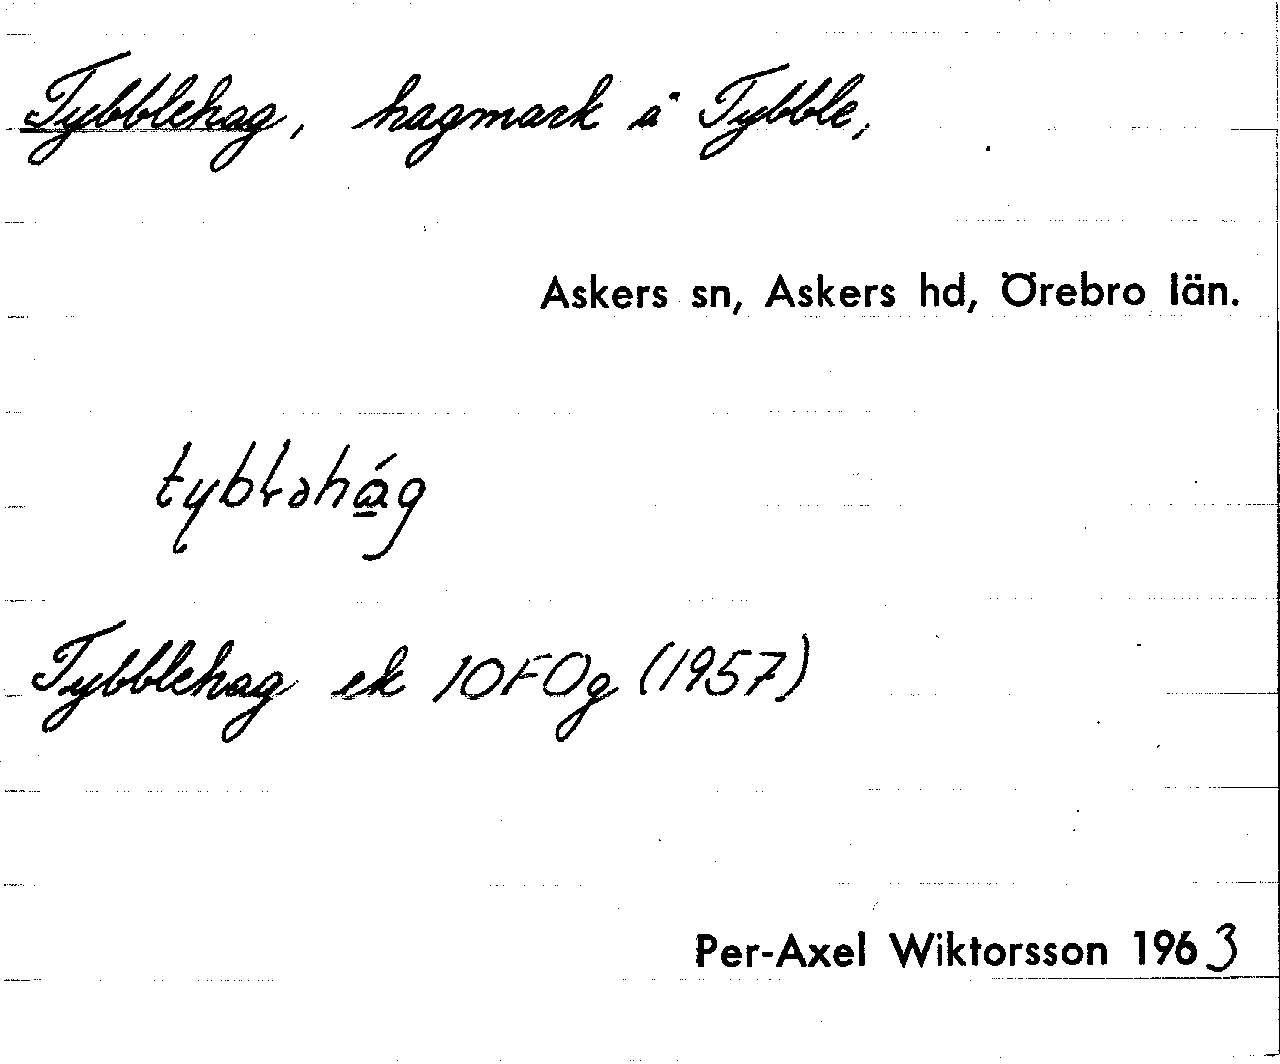 Tybblehag, hagmark å Tybble,
Askers sn, Askers hd, Örebro län.
tybłəhág
Tybblehag ek 10FOg (1957)
Per-Axel Wiktorsson 1963